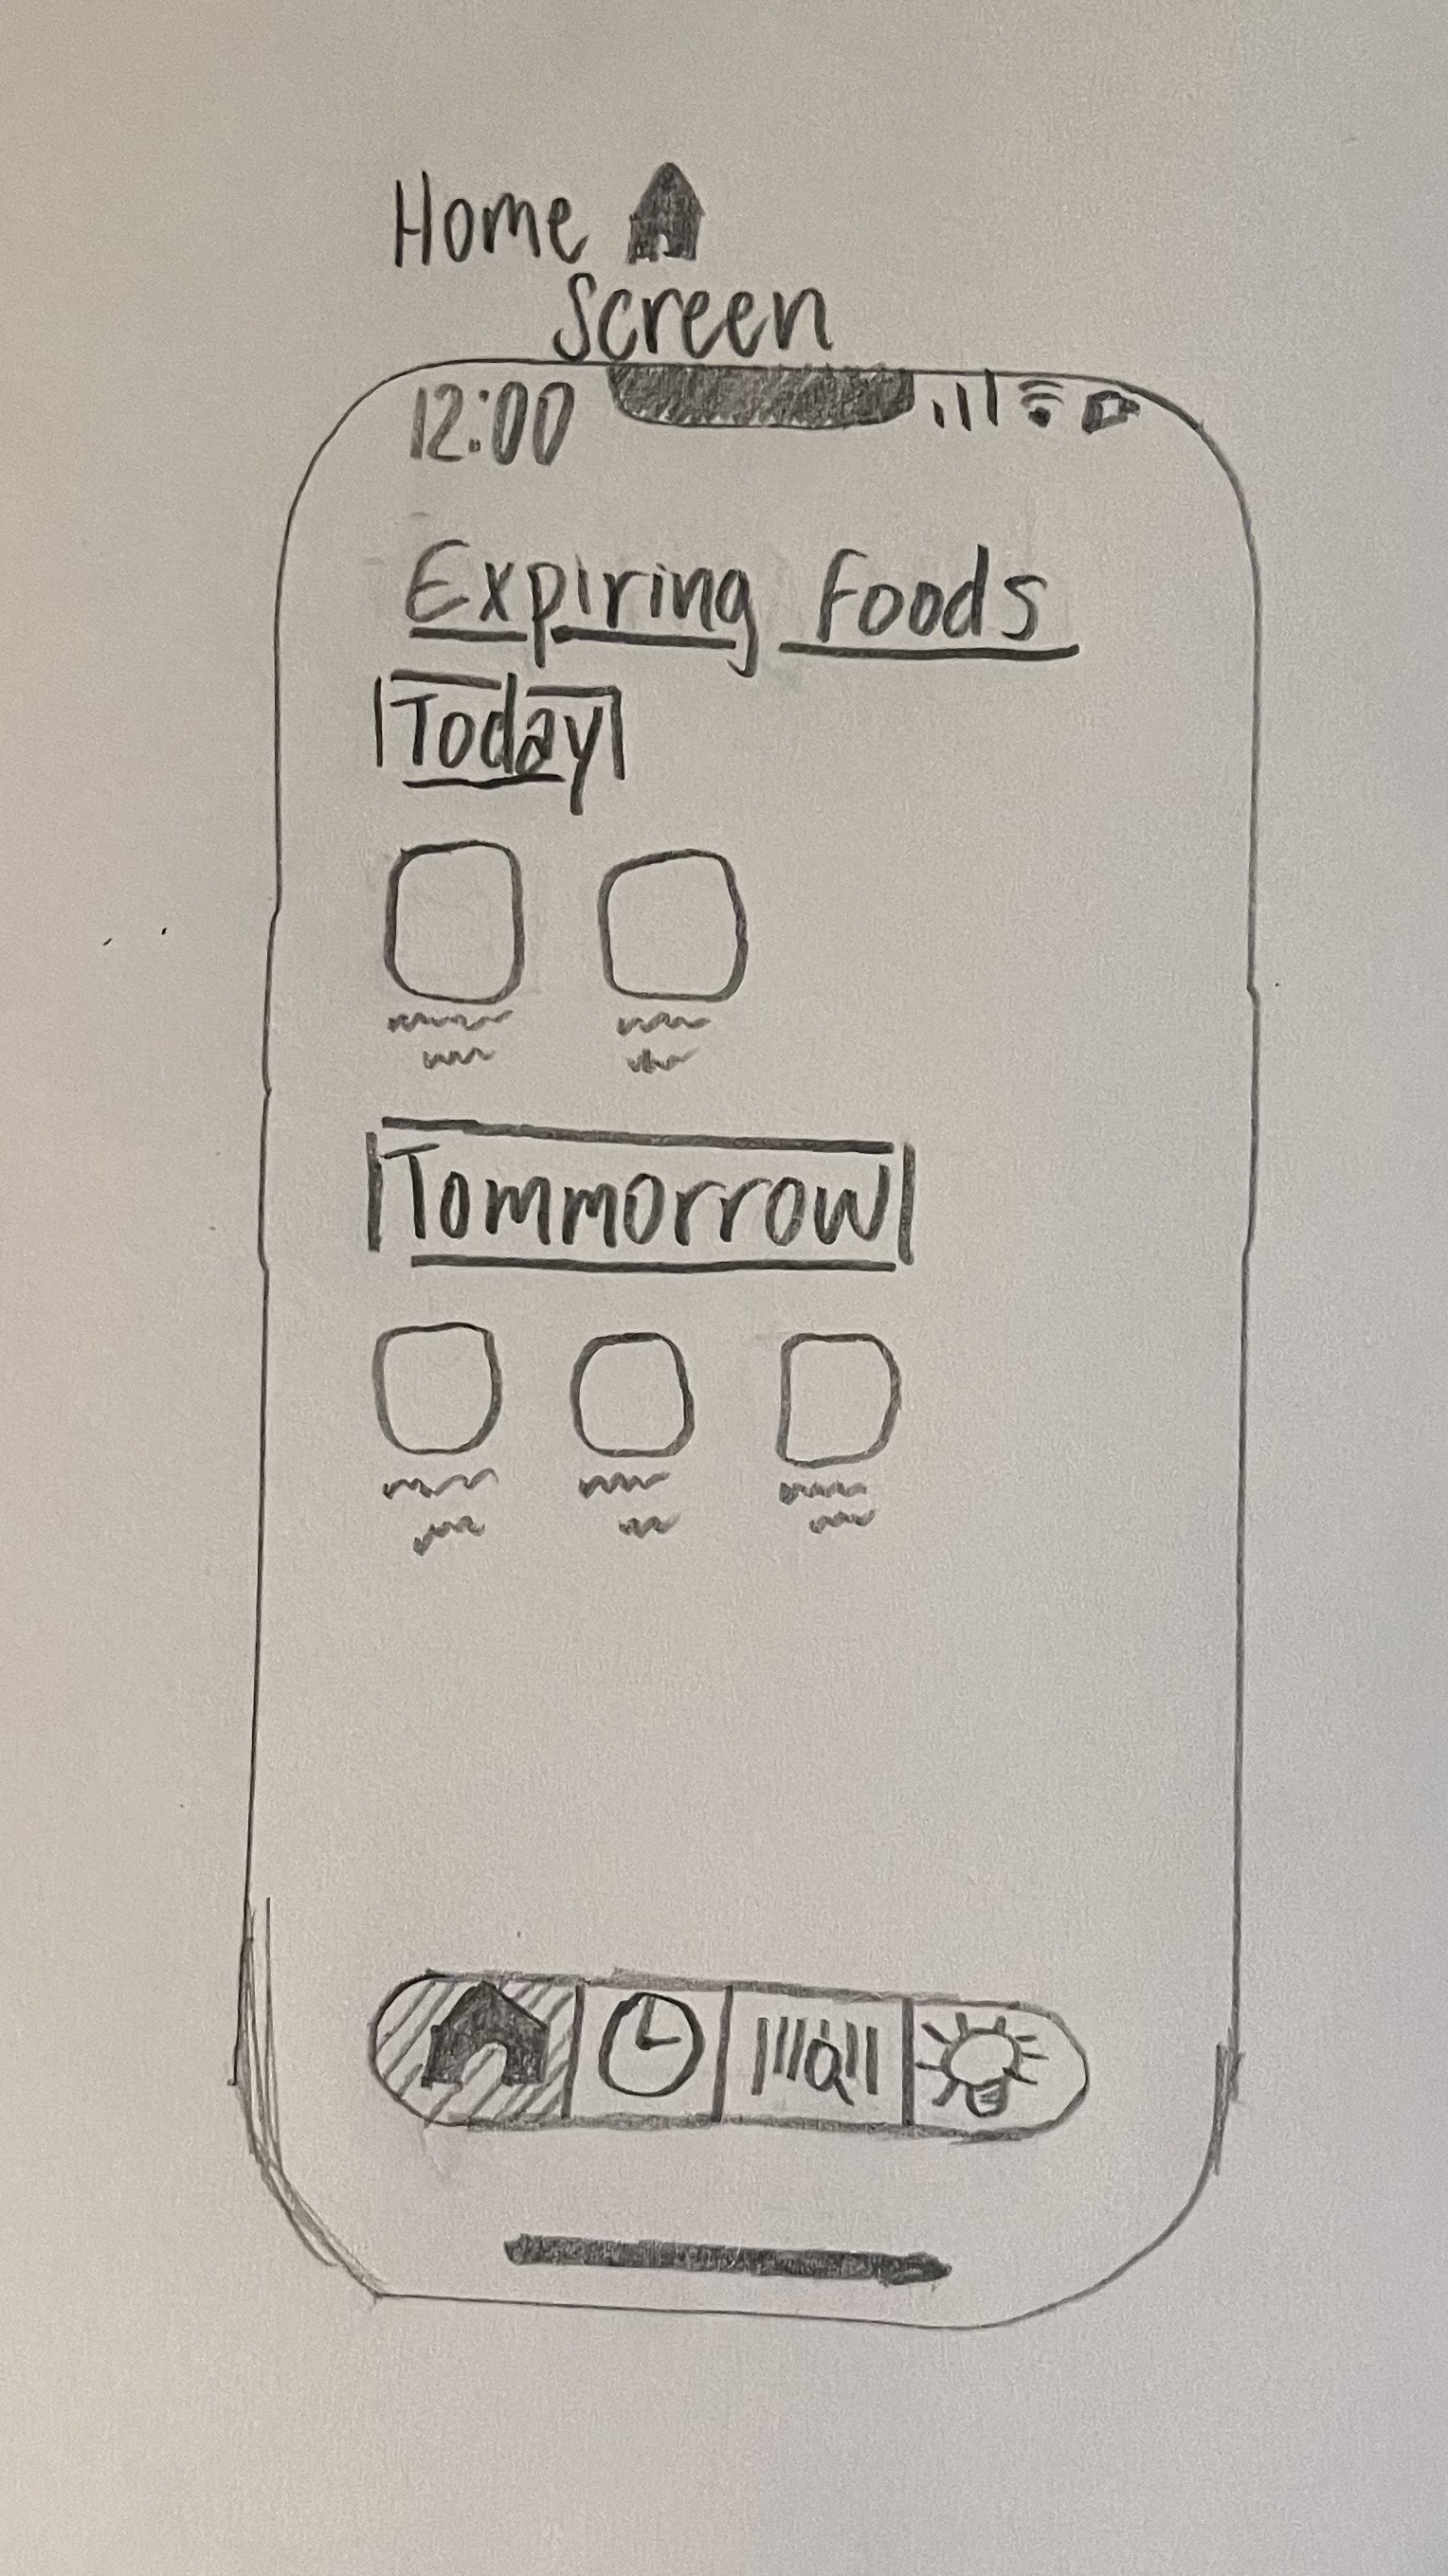 Home
Screen
12:00
Expiring Foods
Today
Tommorrow